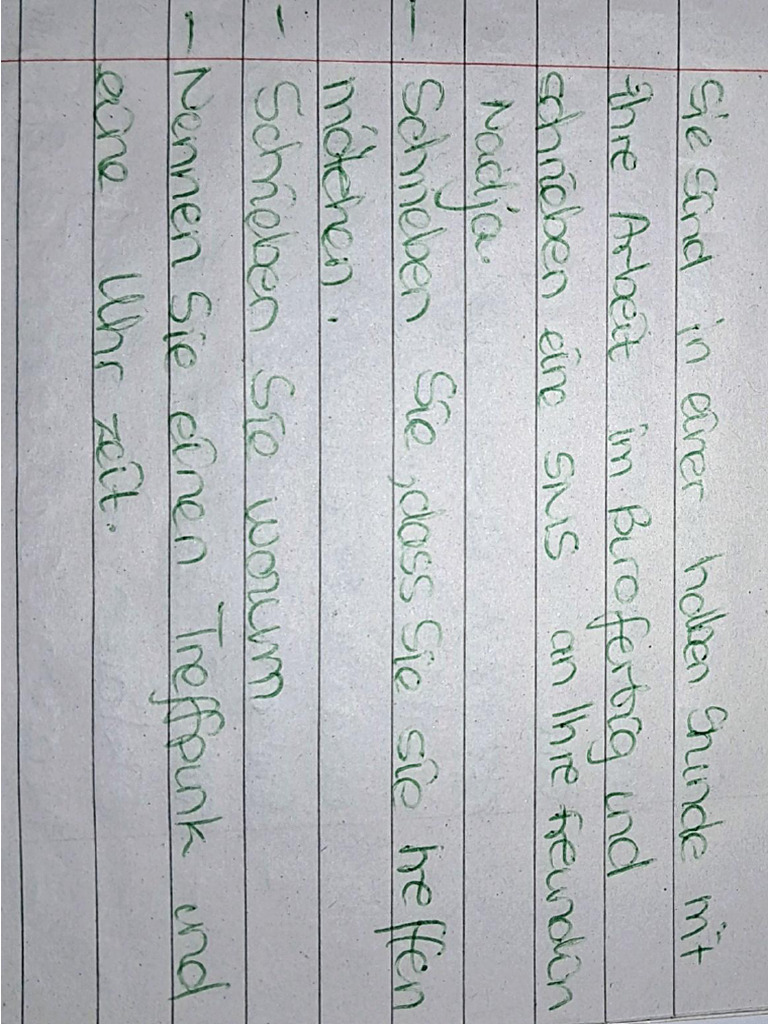 Sie sind in einer halben Stunde mit
Ihre Arbeit im Buro fertig und
schrieben eine SMS an Ihre freundin
Nadja.
- Schrieben Sie, dass Sie sie treffen
mötchen.
- Schrieben Sie worum
- Nennen Sie einen Treffpunk und
eine Uhr zeit.